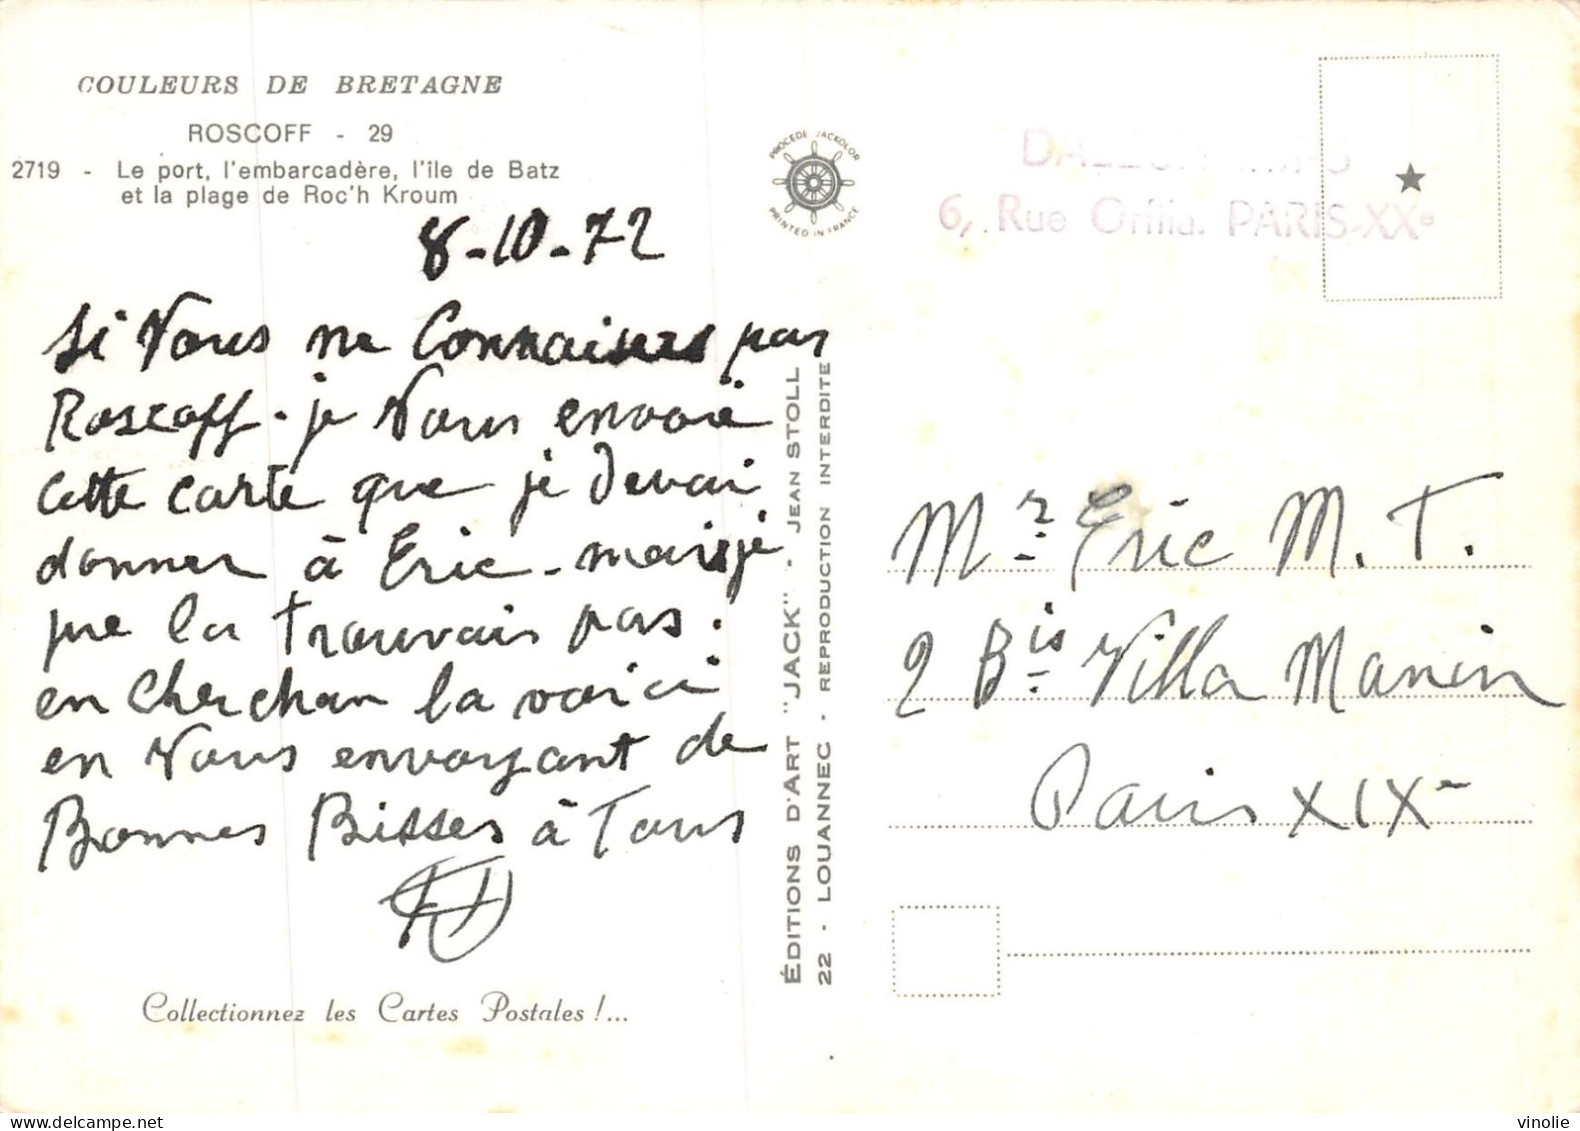 COULEURS DE BRETAGNE
ROSCOFF - 29
2719 - Le port, l'embarcadère, l'île de Batz
et la plage de Roc'h Kroum
8-10-72
Si Vous ne Connaisses pas
Roscoff. je Vous envoie
Cette carte que je devai
donner à Eric - mais je
ne la trouvais pas.
en Cherchan la voici
en Vous envoyant de
Bonnes Bisses à Tous
Collectionnez les Cartes Postales !...
PROCÉDÉ JACKOLOR
PRINTED IN FRANCE
ÉDITIONS D'ART "JACK" - JEAN STOLL
22 - LOUANNEC - REPRODUCTION INTERDITE
6, Rue Orfila. PARIS-XXe
Mr Eric M. T.
2 Bis Villa Manin
Paris XIXe
vinolie